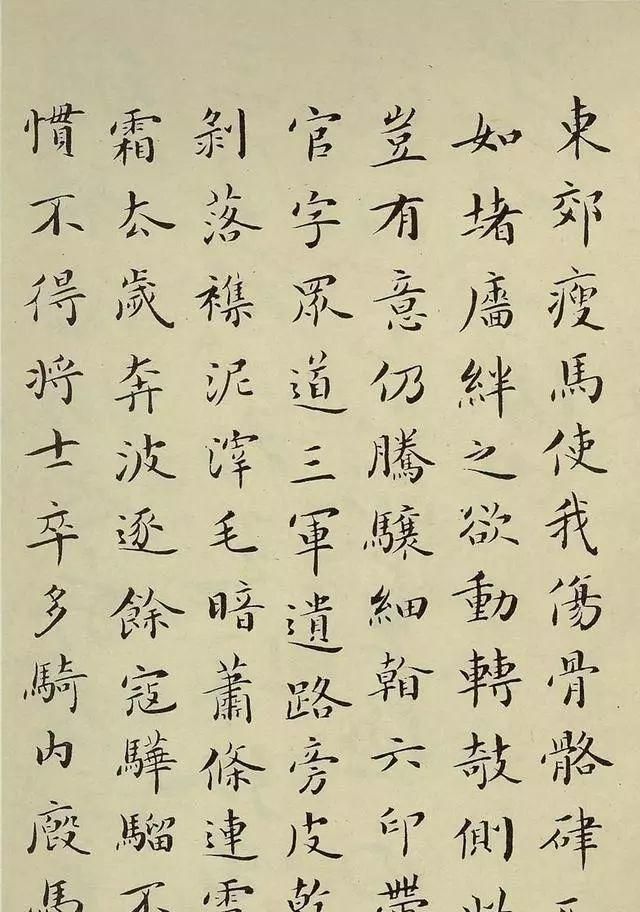 東郊瘦馬使我傷骨骼硉
如堵廧絆之欲動轉敧側此
豈有意仍騰驤細看六印帶
官字眾道三軍遺路旁皮乾
剝落襍泥滓毛暗蕭條連雪
霜去歲奔波逐餘寇驊騮不
慣不得將士卒多騎內廄馬